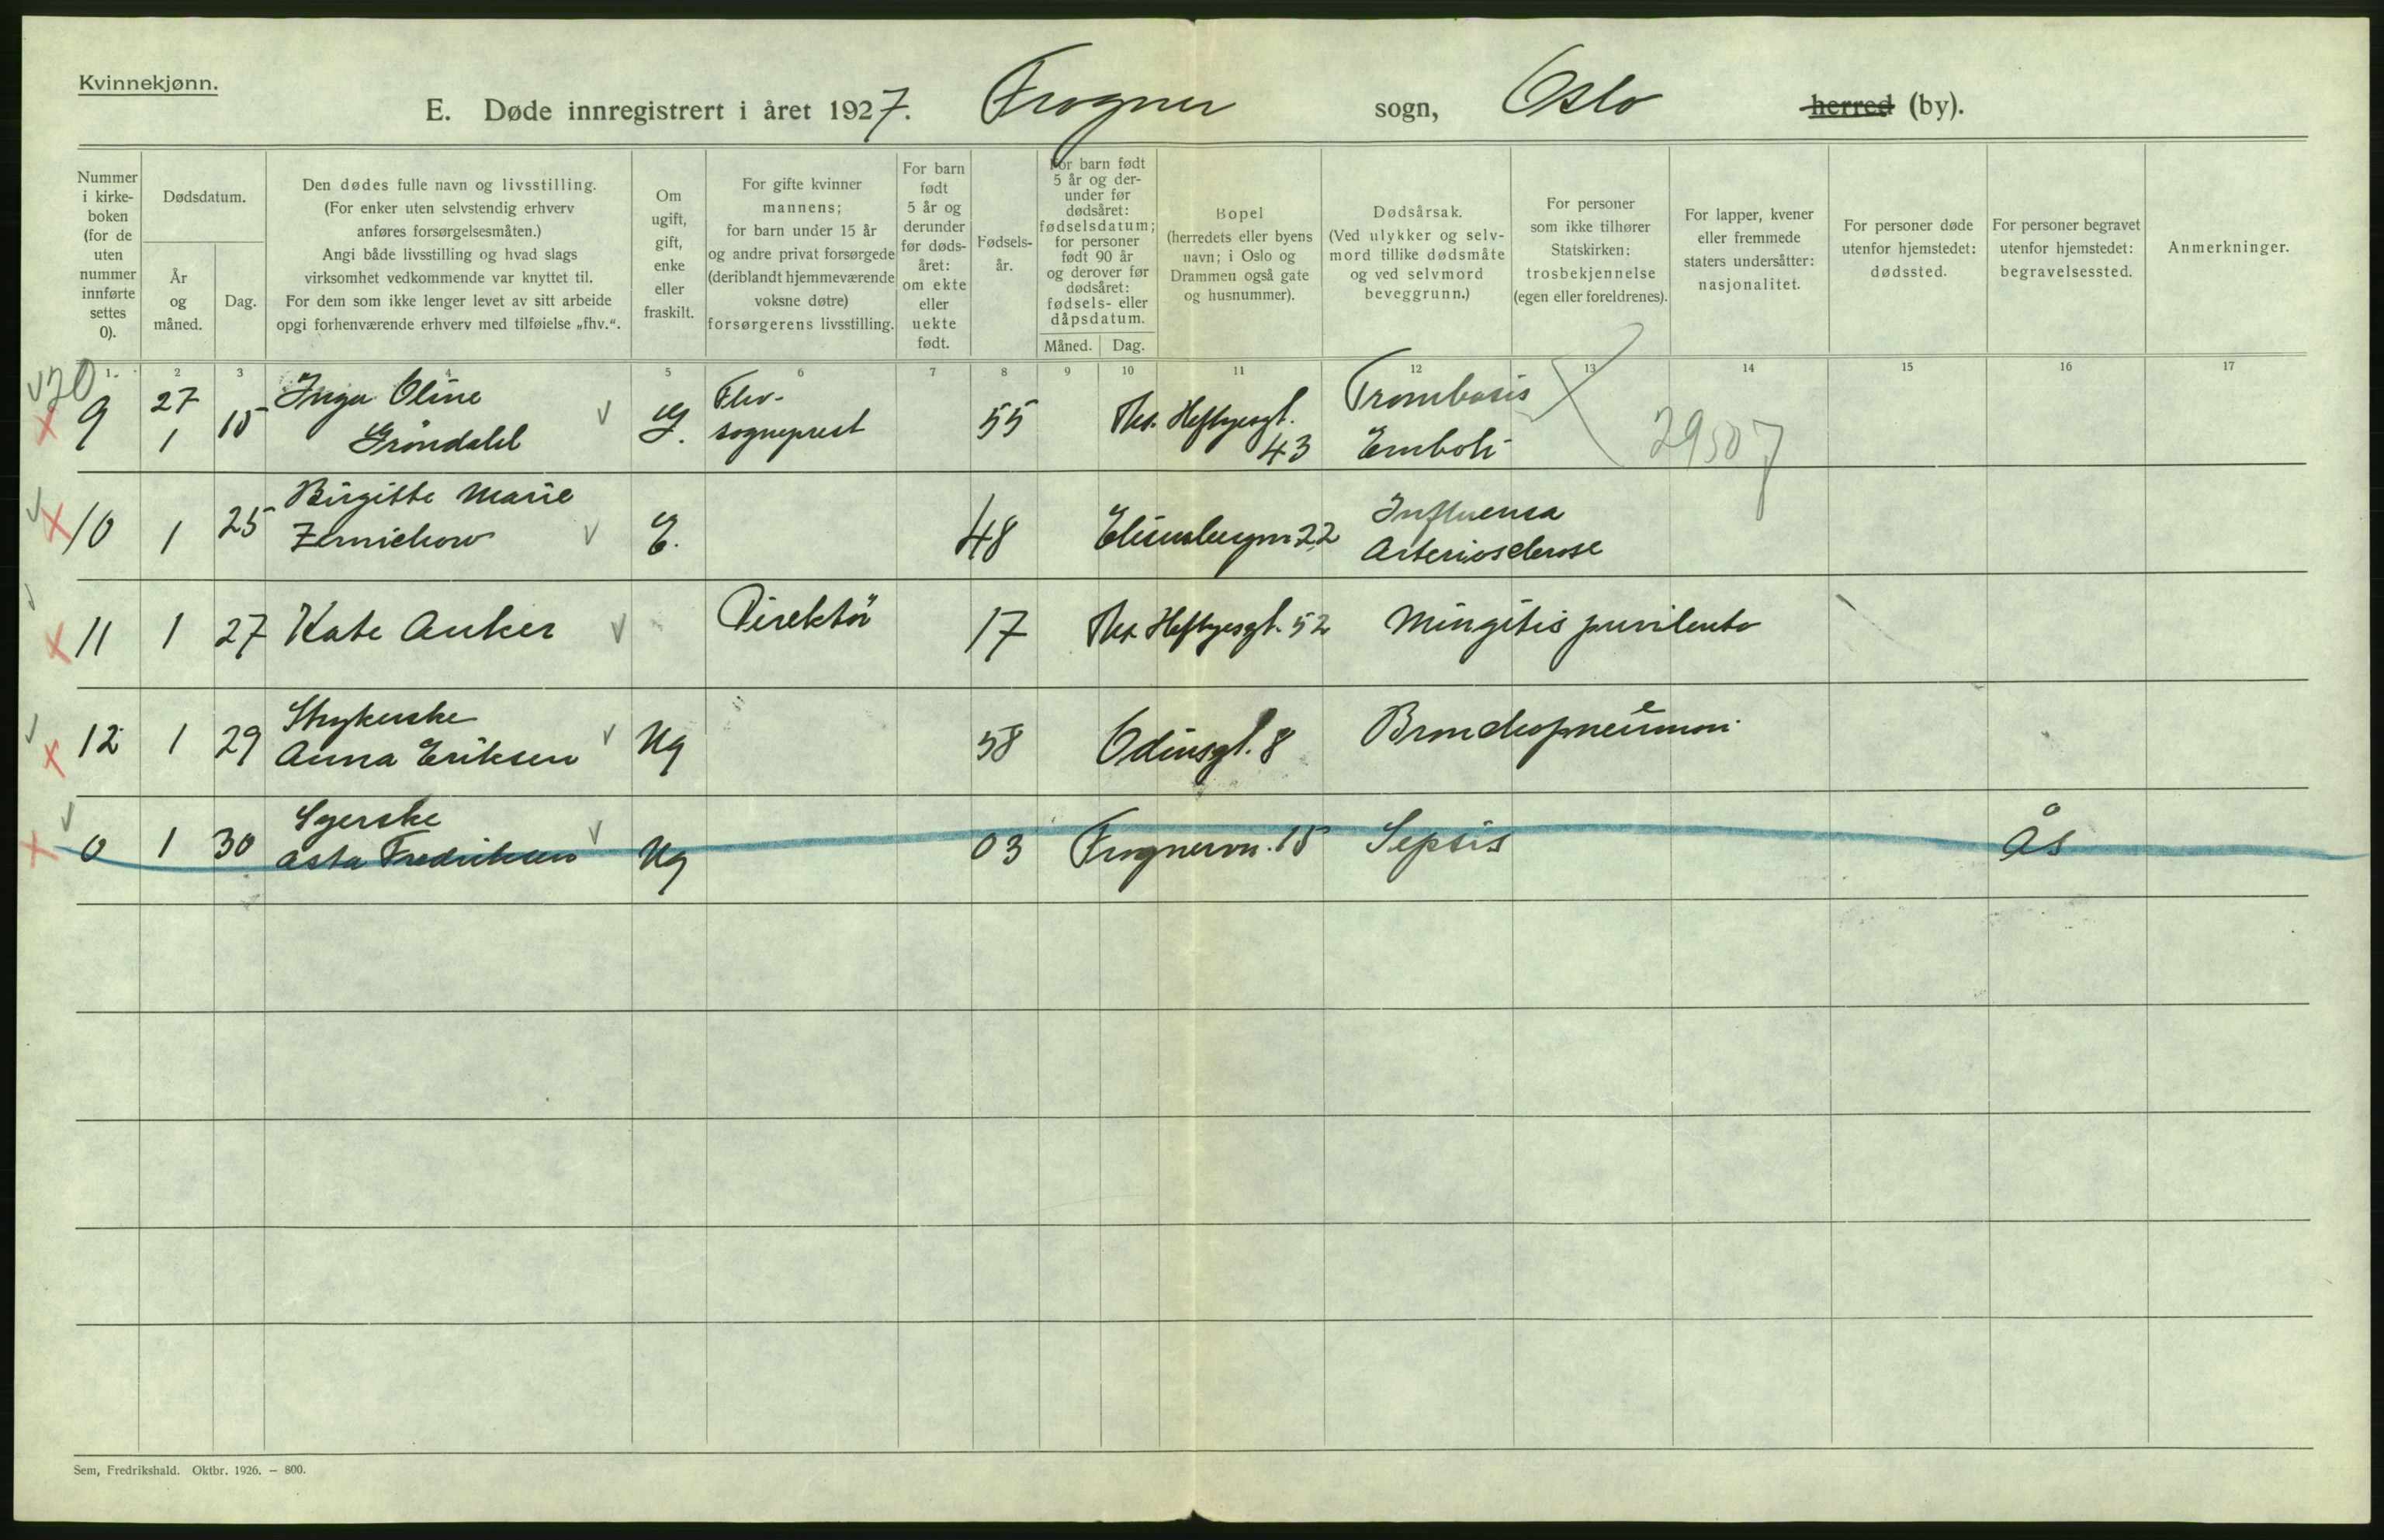 Kvinnekjønn.
E. Døde innregistrert i året 1927. Frogner sogn, Oslo herred (by).
Nummer i kirke- boken (for de uten nummer innførte settes 0).
Dødsdatum.
År og måned.
Dag.
Den dødes fulle navn og livsstilling.
(For enker uten selvstendig erhverv
anføres forsørgelsesmåten.)
Angi både livsstilling og hvad slags
virksomhet vedkommende var knyttet til.
For dem som ikke lenger levet av sitt arbeide
opgi forhenværende erhverv med tilføielse „fhv.“.
Om
ugift,
gift,
enke
eller
fraskilt.
For gifte kvinner
mannens;
for barn under 15 år
og andre privat forsørgede
(deriblandt hjemmeværende
voksne døtre)
forsørgerens livsstilling.
For barn
født
5 år og
derunder
før døds-
året:
om ekte
eller
uekte
født.
Fødsels-
år.
For barn født
5 år og der-
under før
dødsåret:
fødselsdatum;
for personer
født 90 år
og derover før
dødsåret:
fødsels- eller
dåpsdatum.
Måned. Dag.
Bopel
(herredets eller byens
navn; i Oslo og
Drammen også gate
og husnummer).
Dødsårsak.
(Ved ulykker og selv-
mord tillike dødsmåte
og ved selvmord
beveggrunn.)
For personer
som ikke tilhører
Statskirken:
trosbekjennelse
(egen eller foreldrenes).
For lapper, kvener
eller fremmede
staters undersåtter:
nasjonalitet.
For personer døde
utenfor hjemstedet:
dødssted.
For personer begravet
utenfor hjemstedet:
begravelsessted.
Anmerkninger.
1. 2 3 4 5 6 7 8 9 10 11 12 13 14 15 16 17
9 27 1 15 Inga Oline Gröndahl G. Fhv. sogneprest 55 Ths. Heftyesgt. 43 Trombosis Emboli 29507
10 1 25 Birgitte Marie Zernichow E. 48 Elisenbergvn 22 Influensa Arteriosclerose
11 1 27 Kate Anker Direktör 17 Ths. Heftyesgt. 52 Mingitis purilenta
12 1 29 Strykerske Anna Eriksen Ug 58 Odinsgt. 8 Bronchopneumoni
0 1 30 Syerske Asta Fredriksen Ug 03 Frognervn. 15 Sepsis Ås
Sem, Fredrikshald. Oktbr. 1926. — 800.